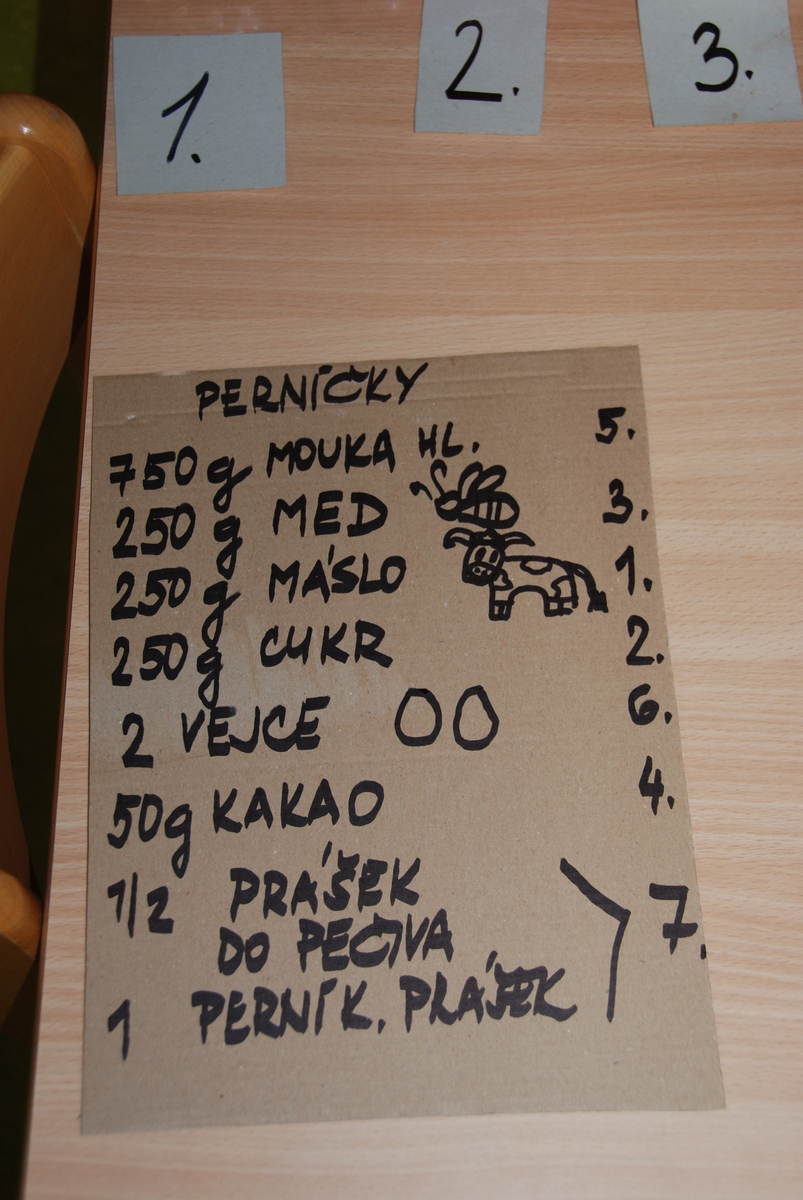 1.
2.
3.
PERNÍČKY
750 g MOUKA HL. 5.
250 g MED 3.
250 g MÁSLO 1.
250 g CUKR 2.
2 VEJCE 6.
50g KAKAO 4.
1/2 PRÁŠEK
DO PEČIVA 7.
1 PERNÍK. PRÁŠEK